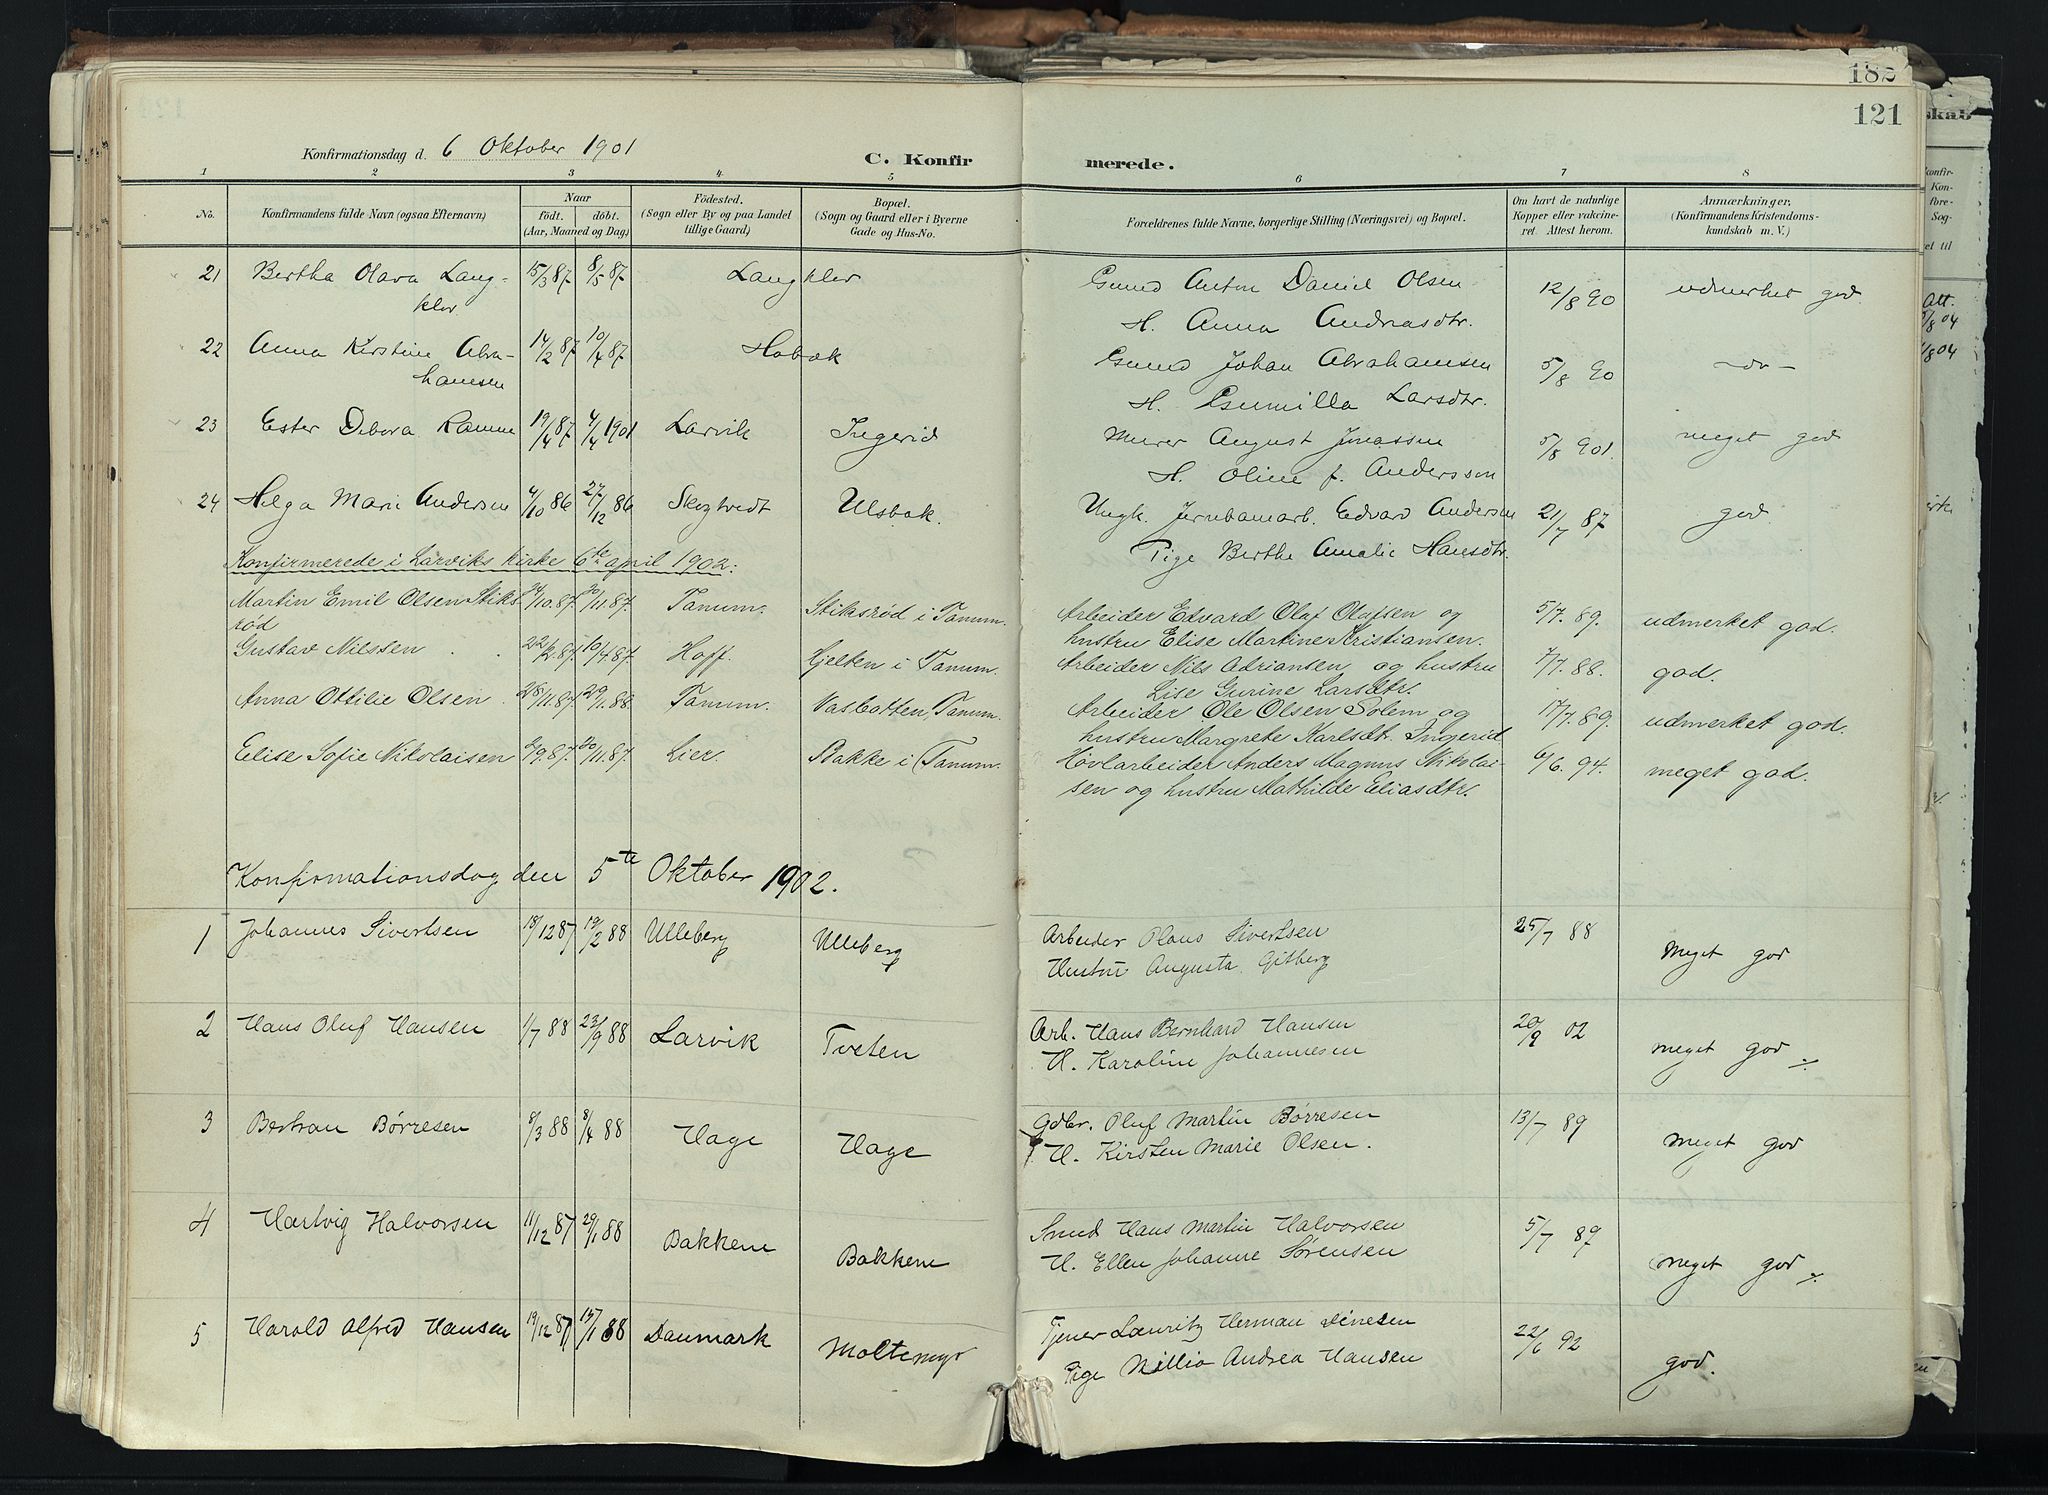 182
121
Konfirmationsdag d. 6 Oktober 1901
C. Konfir
merede.
1 2 3 4 5 6 7 8
No.
Konfirmandens fulde Navn (ogsaa Efternavn)
Naar
födt. döbt.
(Aar, Maaned og Dag)
Födested.
(Sogn eller By og paa Landet
tillige Gaard)
Bopæl.
(Sogn og Gaard eller i Byerne
Gade og Hus-No.
Forældrenes fulde Navne, borgerlige Stilling (Næringsvei) og Bopæl.
Om havt de naturlige
Kopper eller vakcine-
ret. Attest herom.
Anmærkninger,
(Konfirmandens Kristendoms-
kundskab m. V.)
21 Bertha Olava Lang- 15/3 87 8/5 87 Langklev Gmd Anton Daniel Olsen 12/8 90 udmerket god
klev H. Anna Andreasdtr.
22 Anna Kirstine Abra- 14/2 87 10/4 87 Hobæk Gmd Johan Abrahamsen 5/8 90 -do-
hamsen H. Gunilla Larsdtr.
23 Ester Debora Ramm 19/4 87 4/4 1901 Larvik Ingerid Murer August Jonassen 5/8 901. meget god
H. Oline f. Andersson
24 Helga Marie Andersen 4/10 86 27/12 86 Skogtvedt Ulsbak. Ungk. Jernbanearb. Edvard Andersen 21/7 87 god.
Pige Berthe Amalie Hansdtr.
Konfirmerede i Larviks kirke 6te april 1902:
Martin Emil Olsen Stiks- /10.87. 20/11.87. Tanum. Stiksrød i Tanum. Arbeider Edvard Olaf Olafsen og 5/7. 89. udmerket god.
rød hustru Elise Martine Kristiansen.
Gustav Nilssen 22/2.87. 10/4.87. Hoff. Hjelten i Tanum. Arbeider Nils Adriansen og hustru 7/7. 88. god.
Lise Gurine Larsdtr.
Anna Ottilie Olsen 28/11.87. 29/1.88. Tanum. Vasbotten, Tanum. Arbeider Ole Olsen Solem og 17/7. 89. udmerket god.
hustru Margrete Karlsdt. Ingerid
Elise Sofie Nikolaisen /9.87. 20/11.87. Lier. Bakke i Tanum. Høvlarbeider Anders Magnus Nikolai- 6/6. 94. meget god.
sen og hustru Mathilde Eliasdtr.
Konfirmationsdag den 5te Oktober 1902.
1 Johannes Sivertsen 18/12 87 19/2 88 Ulleberg Ulleberg Arbeider Olaus Sivertsen 25/7 88 Meget god
Hustru Augusta Gitberg
2 Hans Oluf Hansen 1/7 88 23/9 88 Larvik Tveten Arb. Hans Bernhard Hansen 20/9 02 meget god
H. Karoline Johannesen
3 Bertran Børresen 8/3 88 8/4 88 Hage Hage Gdbr. Oluf Martin Børresen 13/7 89 meget god
H. Kirsten Marie Olsen.
4 Hartvig Halvorsen 11/12 87 29/1 88 Bakkene Bakkene Smed Hans Martin Halvorsen 5/7 89 meget god
H. Ellen Johanne Sørensen
5 Harold Alfred Hansen 19/12 87 15/1 88 Danmark Moltemyr Tjener Lauritz Herman Dinesen 22/6 92 god.
Pige Nillia Andrea Hansen